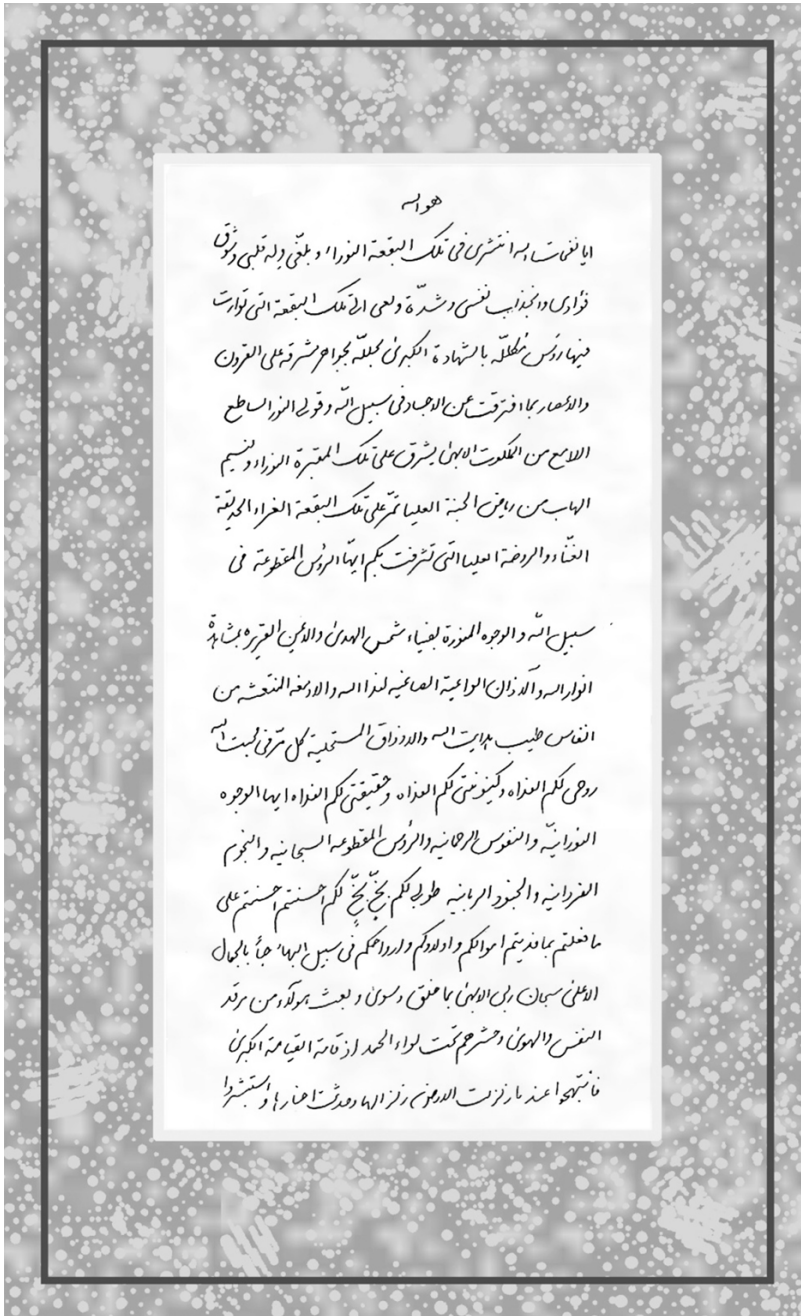 هوالله
ایا نفحات الله انتشری فی تلک البقعة النوراء و بلغی وله قلبی و شوق
فؤادی و انجذاب نفسی و شدّة ولعی الی تلک البقعة التی توارت
فیها رؤس مکلله بالشهادة الکبری مجللّه بجواهر مشرقه علی القرون
والاعصار بما افترقت عن الاجساد فی سبیل الله و قولی النور الساطع
اللامع من الملکوت الابهی یشرق علی تلک المقبرة النوراء و نسیم
الهاب من ریاض الجنة العلیا تمرّ علی تلک البقعة الغراء الحدیقة
الغنّاء و الروضة العلیا التی تشرفت بکم ایهّا الرؤس المقطوعة فی
سبیل الله و الوجوه المنورة بضیاء شمس الهدی و الاعین القریره بمشاهدة
انوار الله و الآذان الواعیة الصاغیه لنداء الله و الادمغه المنتعشه من
انفاس طیب هدایت الله والاذواق المستحلیة کل مرّ فی محبت الله
روحی لکم الفداء و کینونتی لکم الفداء و حقیقتی لکم الفداء ایها الوجوه
النورانیّه و النفوس الرحمانیه و الرؤس المقطوعه السبحانیه و النجوم
الفردانیه و الجنود الربانیه طوبی لکم بخّ بخّ لکم احسنتم احسنتم علی
ما فعلتم بما فدیتم اموالکم و اولادکم و ارواحکم فی سبیل البهاء حبّاً بالجمال
الاعلی سبحان ربی الابهی بما خلق و سوی و بعث هؤلاء من مرقد
النفس و الهوی و حشرهم تحت لواء الحمد اذ قامة القیامة الکبری
فابتهجوا عند ما زلزلت الارض زلزالها و حدثت اخبارها و استبشروا